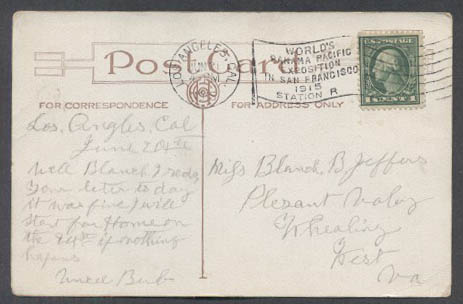 Post Card
LOS ANGELES, CAL.
JUN
WORLD'S
PANAMA PACIFIC
EXPOSITION
IN SAN FRANCISCO
1915
STATION R
U.S. POSTAGE
1 CENT 1
FOR CORRESPONDENCE
FOR ADDRESS ONLY
Los. Angles, Cal
June 20th
Well Blanch I recd
your letter to day
it was fine I will
start for Home on
the 24th if nothing
hapens
Uncel Bub
Miss Blanch, B Jeffers
Plezant Valey
Whealing
West
Va